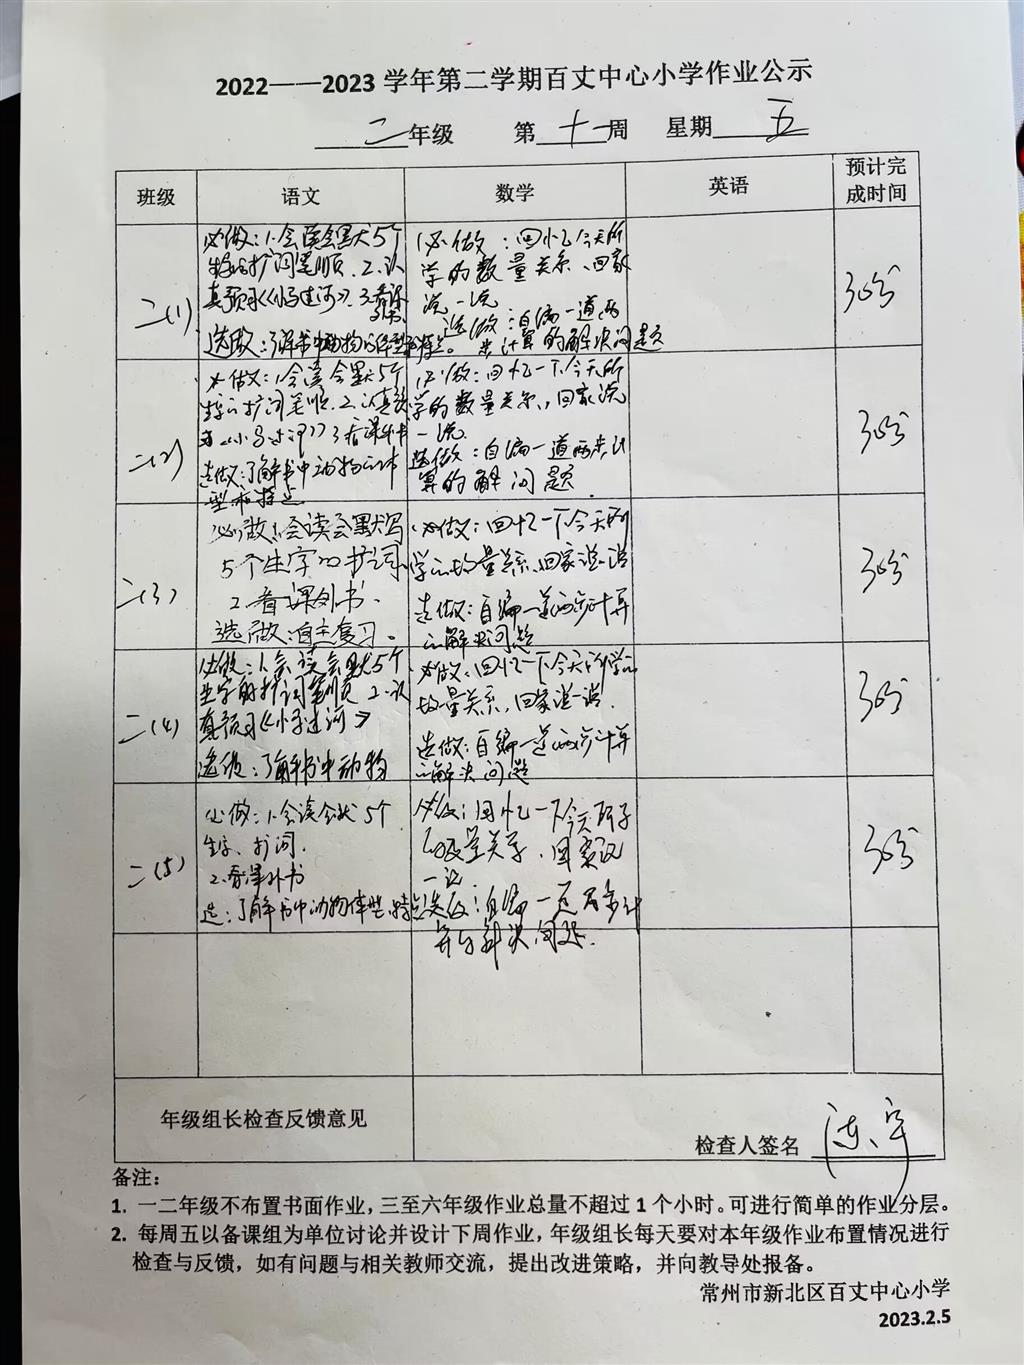 2022——2023 学年第二学期百丈中心小学作业公示
二 年级 第 十一 周 星期 五
班级 语文 数学 英语 预计完成时间
二(1)
必做：1.会读会默写5个
生字的扩词笔顺. 2.认
真预习《小马过河》. 3.看课
选做：了解书中动物的体型和特点。
必做：回忆今天所
学的数量关系、回家
说一说
选做：自编一道两
步计算的解决问题
30分
二(2)
必做：1.会读会默5个
生字的扩词笔顺. 2.认真预
习《小马过河》3.看课外书
选做：了解书中动物的体
型和特点
必做：回忆一下今天所
学的数量关系，回家说
一说.
选做：自编一道两步计
算的解问题.
30分
二(3)
必做：1.会读会默写
5个生字的扩词.
2.看课外书.
选做：自主复习.
必做：回忆一下今天所
学的数量关系，回家说一说
选做：自编一道两步计算
的解决问题
30分
二(4)
必做：1.会读会默5个
生字的扩词笔顺 2.认
真预习《小马过河》
选做：了解书中动物
必做：回忆一下今天所学的
数量关系，回家说一说.
选做：自编一道两步计算
的解决问题
30分
二(5)
必做：1.会读会默5个
生字、扩词.
2.看课外书
选：了解书中动物体型、特点
必做：回忆一下今天所学
的数量关系，回家说
一说
选做：自编一道两步计
算的解决问题.
30分
年级组长检查反馈意见
检查人签名
备注：
1. 一二年级不布置书面作业，三至六年级作业总量不超过 1 个小时。可进行简单的作业分层。
2. 每周五以备课组为单位讨论并设计下周作业，年级组长每天要对本年级作业布置情况进行
检查与反馈，如有问题与相关教师交流，提出改进策略，并向教导处报备。
常州市新北区百丈中心小学
2023.2.5